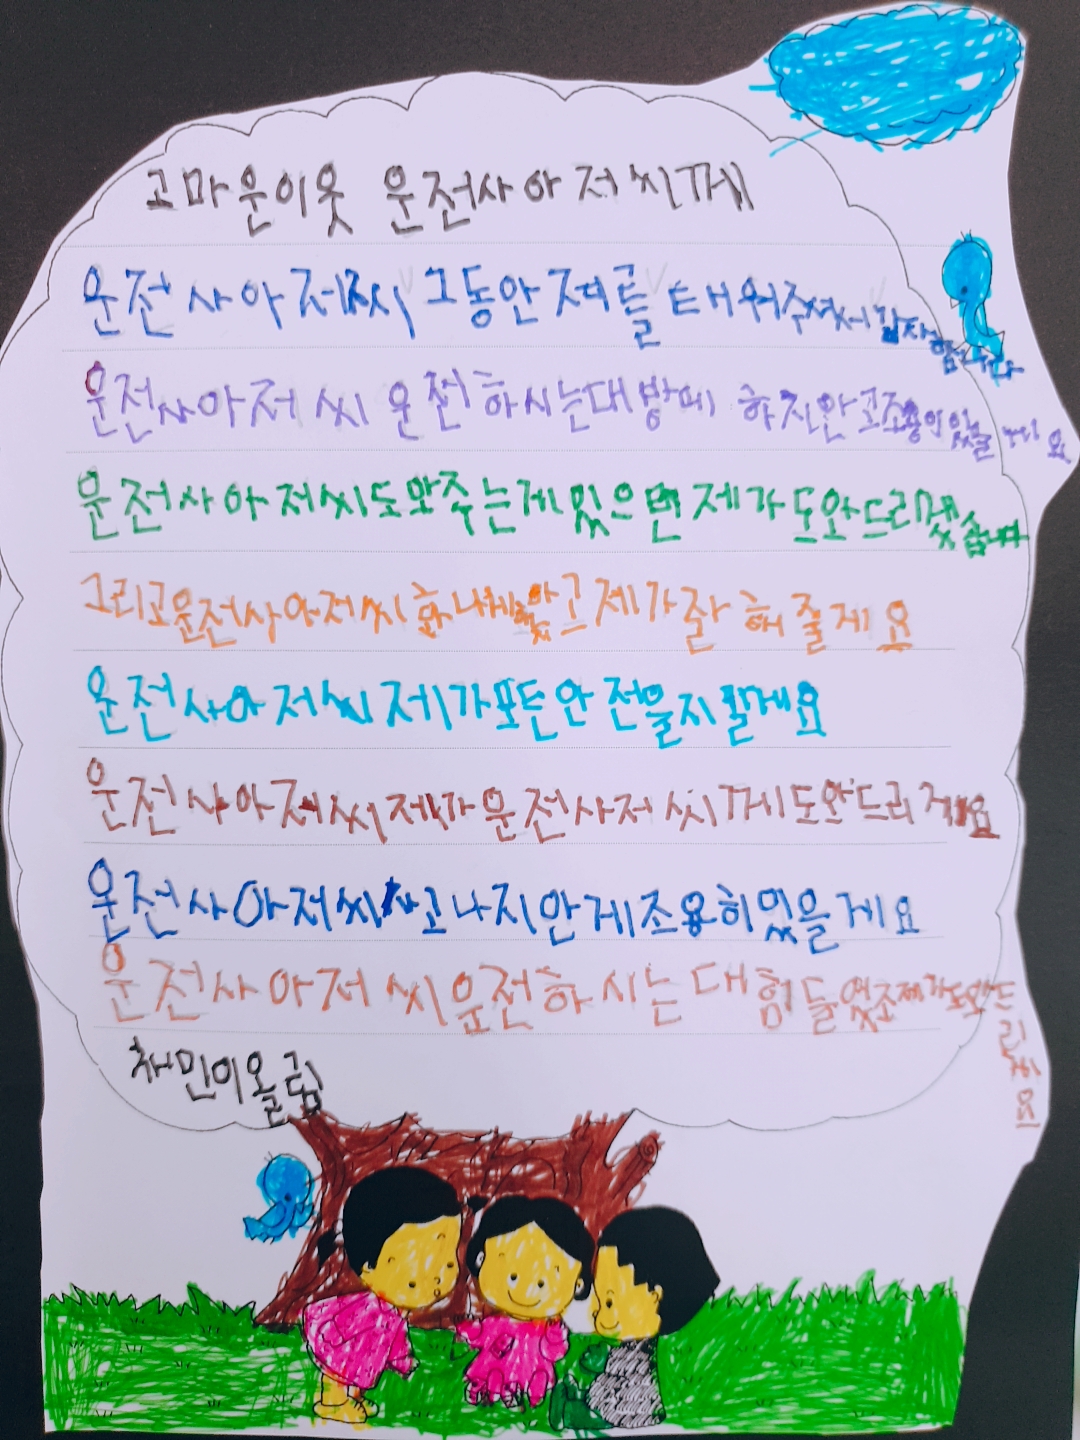 고마운이웃 운전사아저씨께
운전사아저씨 그동안 저를 태워주셔서 감사합니다
운전사아저씨 운전하시는대 방폐 하지안고조용이있을게요
운전사아저씨도와주는게있으면 제가 도와드리겠습니다
그리고운전사아저씨 제가잘 해줄게요
운전사아저씨 제가모든안전을지킬게요
운전사아저씨 제가운전사저씨께도와드리게요
운전사아저씨 나지안게조용히있을게요
운전사아저씨운전하시는대힘들었조제가도와드
릴게요
채민이올림